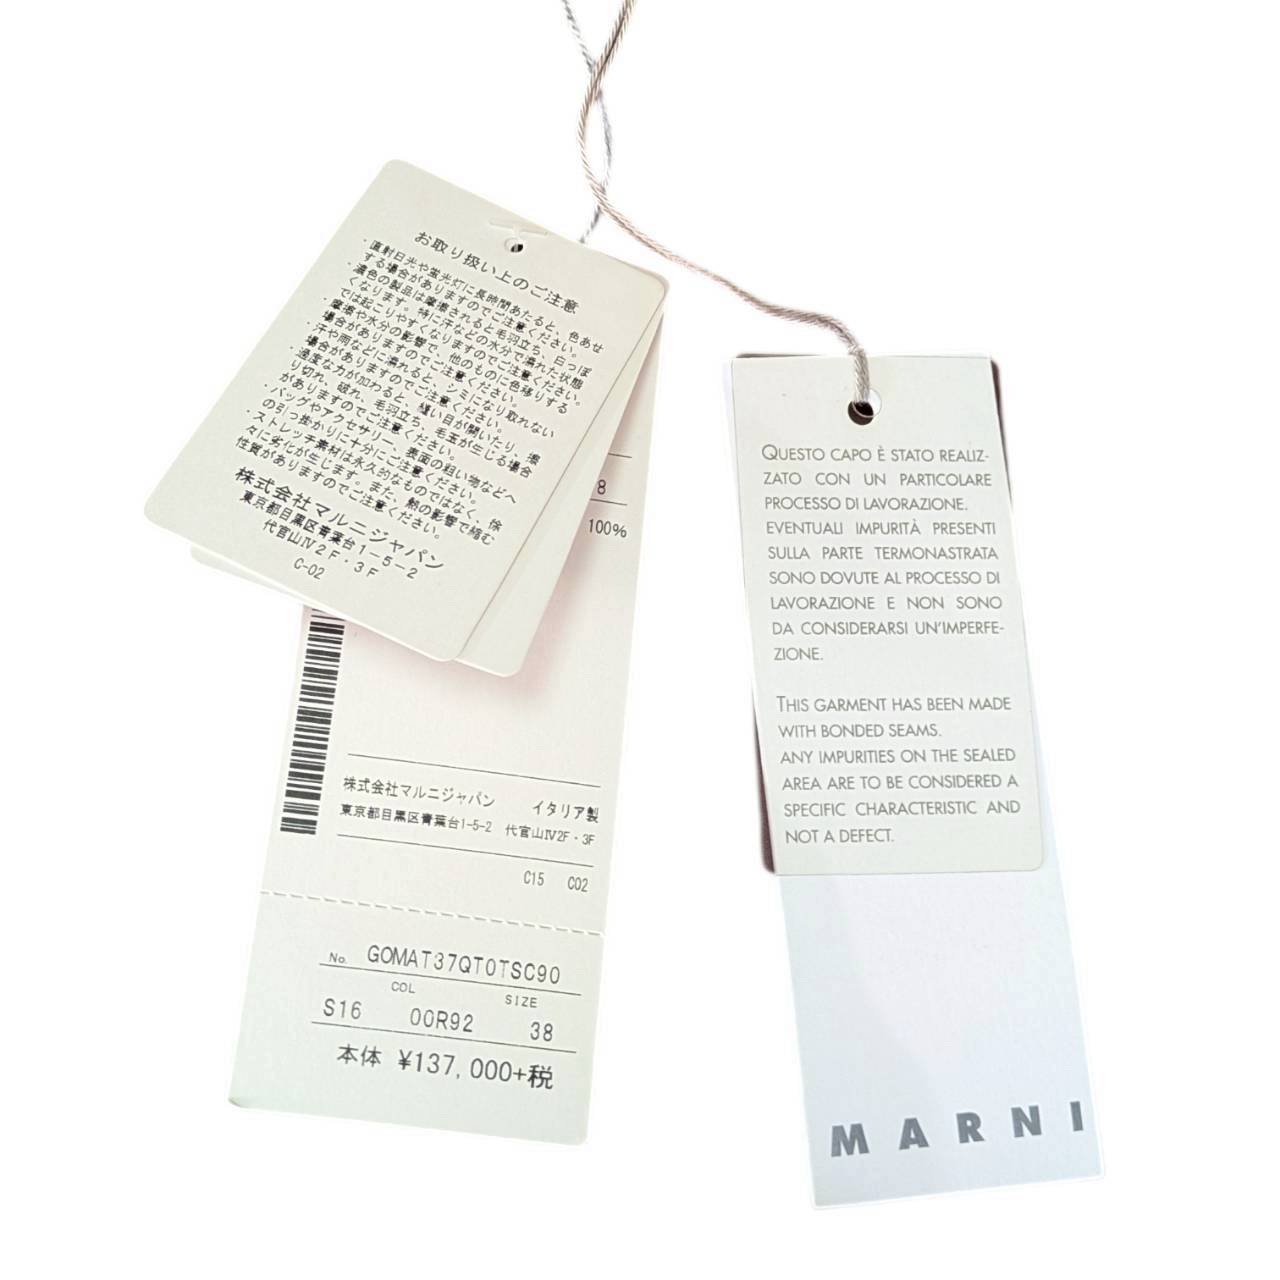 お取り扱い上のご注意
・直射日光や蛍光灯に長時間あたると、色あせ
する場合がありますのでご注意ください。
・濃色の製品は摩擦されると毛羽立ち、白っぽ
くなります。特に汗などの水分で濡れた状態
では起こりやすくなりますのでご注意ください。
・摩擦や水分の影響で、他のものに色移りする
場合がありますのでご注意ください。
・汗や雨などに濡れると、シミになり取れない
場合がありますのでご注意ください。
・過度な力が加わると、縫い目が開いたり、擦
り切れ、破れ、毛羽立ち、毛玉が生じる場合
がありますのでご注意ください。
・バッグやアクセサリー、表面の粗い物などへ
の引っ掛かりに十分にご注意ください。
・ストレッチ素材は永久的なものではなく、徐
々に劣化が生じます。また、熱の影響で縮む
性質がありますのでご注意ください。
株式会社マルニジャパン
東京都目黒区青葉台1-5-2
代官山Ⅳ2F・3F
C-02
8
100%
株式会社マルニジャパン イタリア製
東京都目黒区青葉台1-5-2 代官山Ⅳ2F・3F
C15 C02
No. GOMAT37QT0TSC90
COL SIZE
S16 00R92 38
本体 ¥137,000+税
QUESTO CAPO È STATO REALIZ-
ZATO CON UN PARTICOLARE
PROCESSO DI LAVORAZIONE.
EVENTUALI IMPURITÀ PRESENTI
SULLA PARTE TERMONASTRATA
SONO DOVUTE AL PROCESSO DI
LAVORAZIONE E NON SONO
DA CONSIDERARSI UN'IMPERFE-
ZIONE.
THIS GARMENT HAS BEEN MADE
WITH BONDED SEAMS.
ANY IMPURITIES ON THE SEALED
AREA ARE TO BE CONSIDERED A
SPECIFIC CHARACTERISTIC AND
NOT A DEFECT.
MARNI